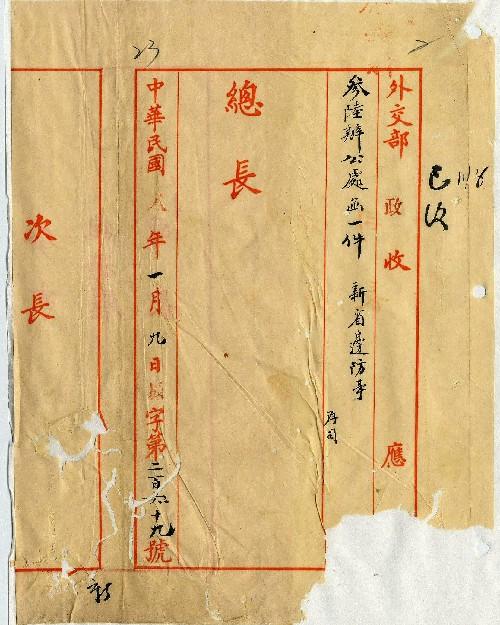 已收
外交部 政 收 應
參陸辦公處函一件 新省邊防事
總長
中華民國 年一月九日 字第二百六十九號
次長
23